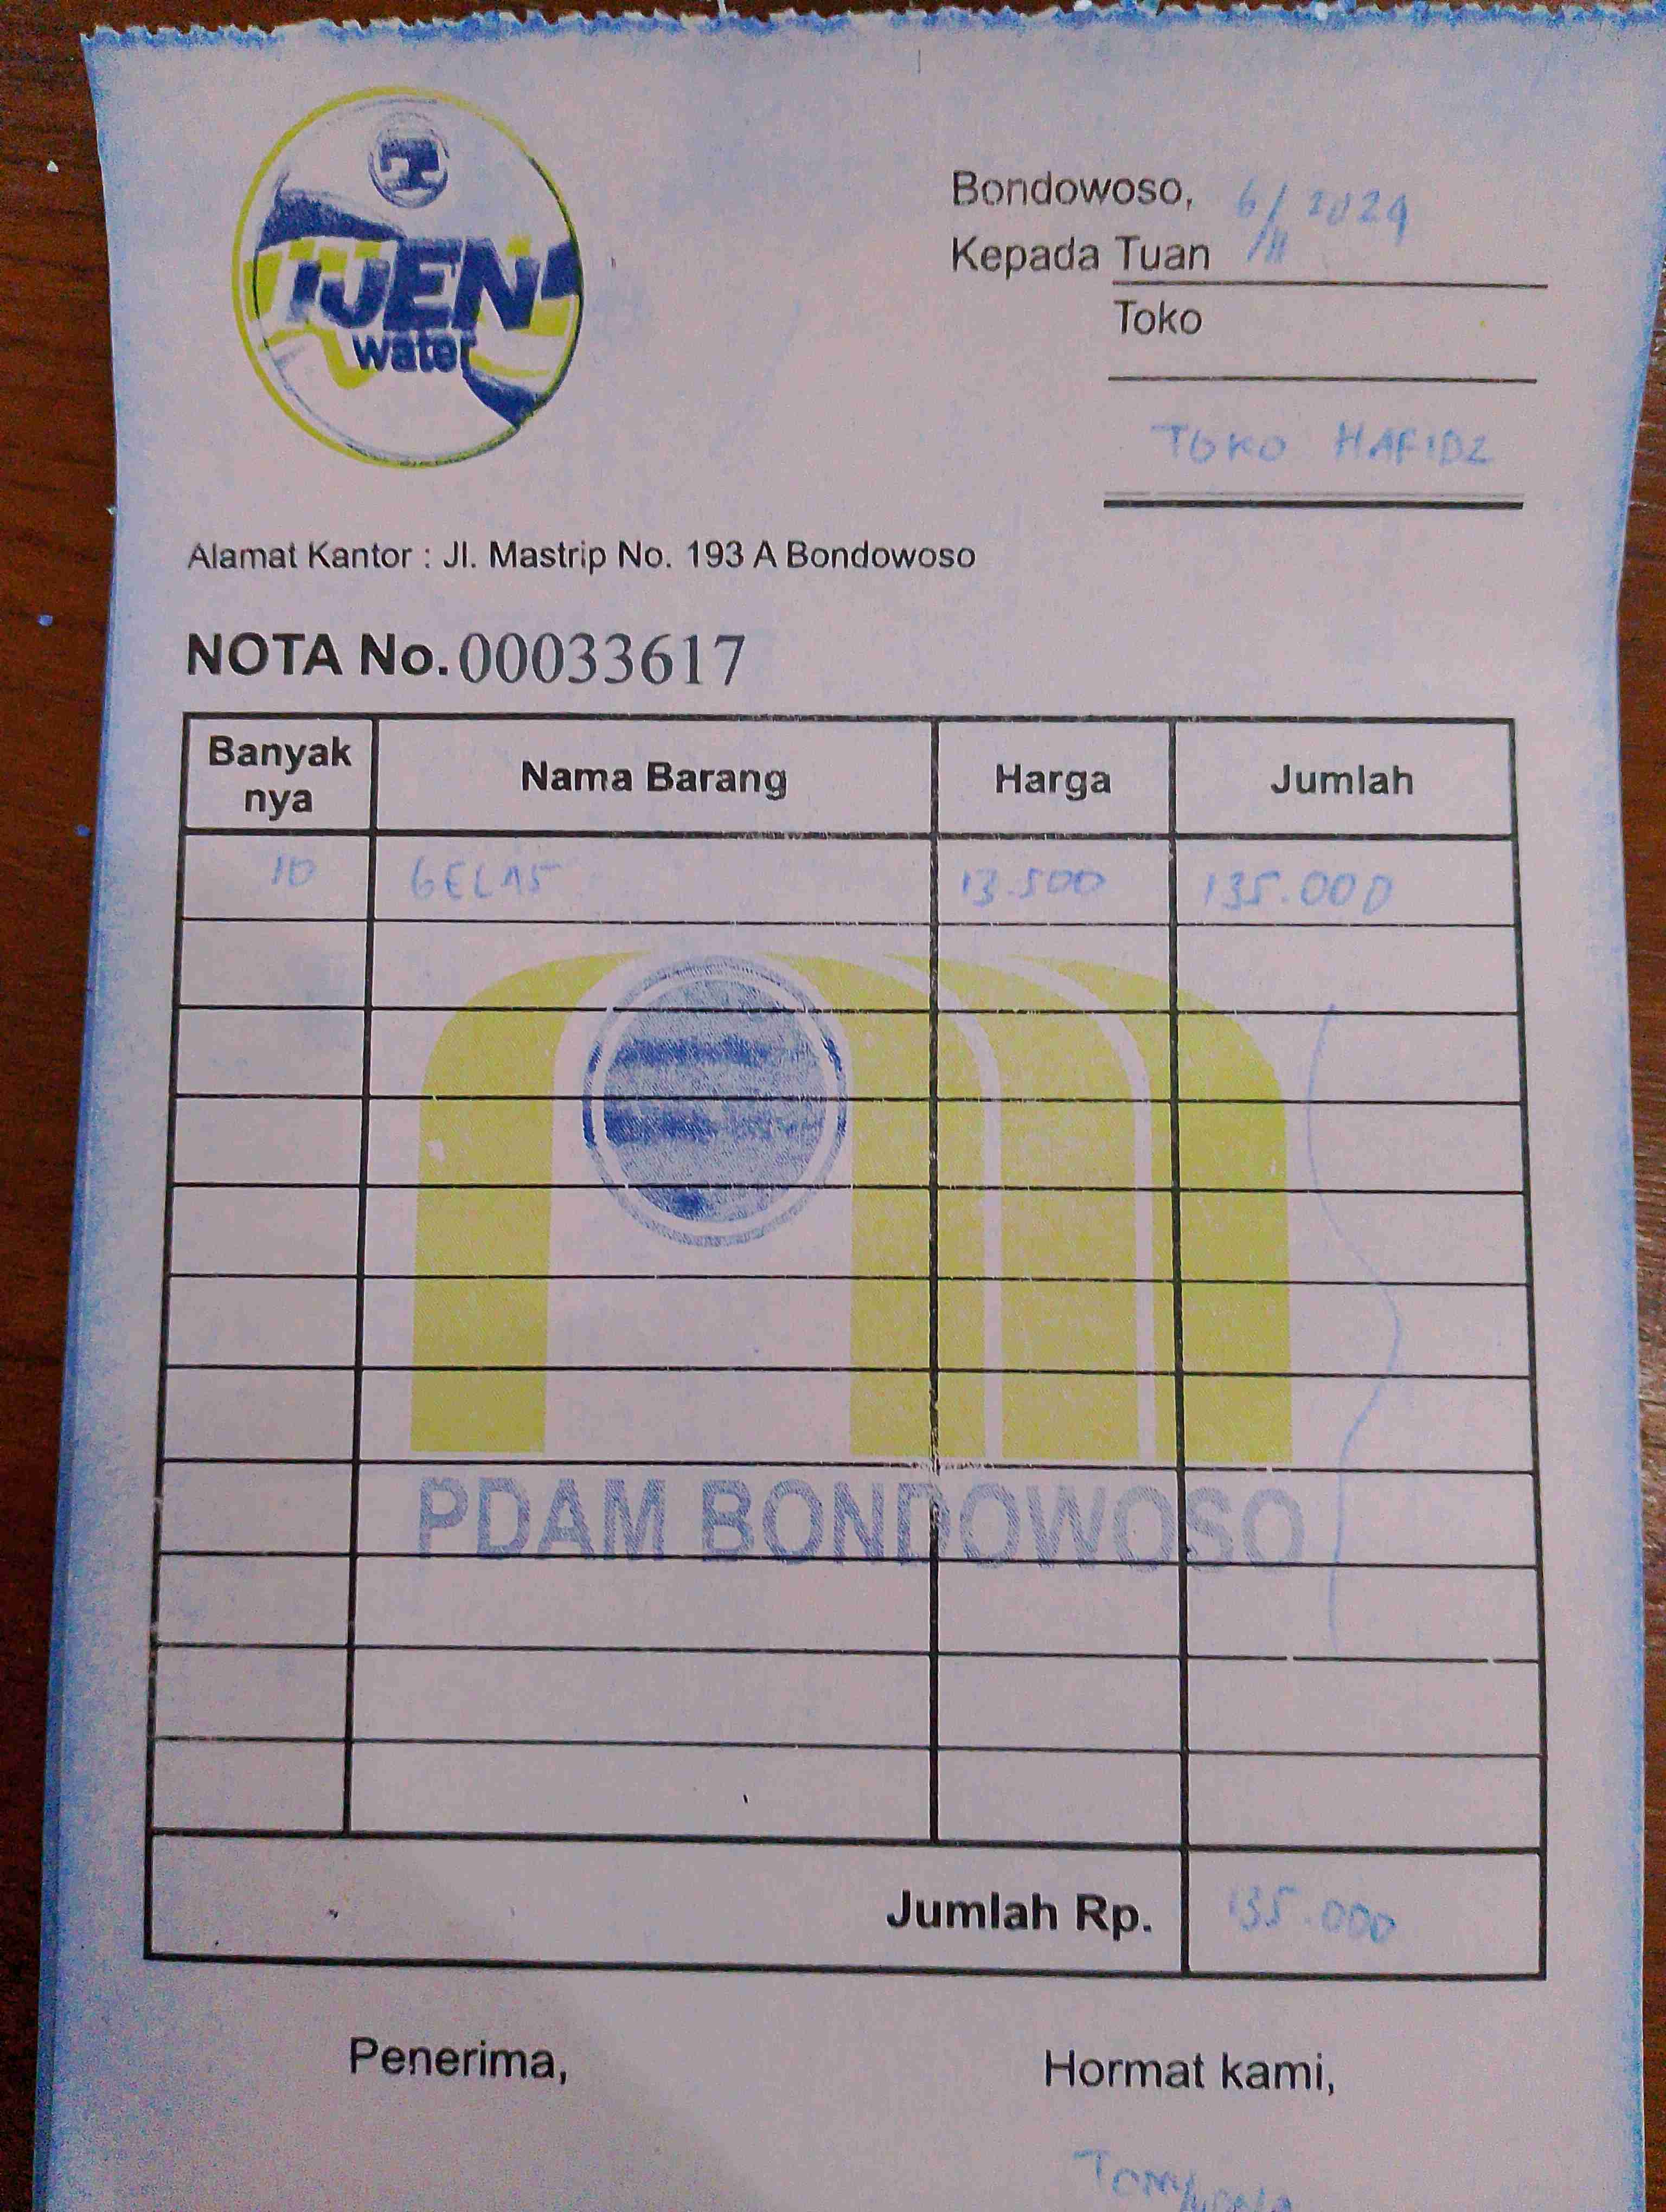 TIJEN
water
Bondowoso, 6/11 2024
Kepada Tuan
Toko
TOKO HAFIDZ
Alamat Kantor : Jl. Mastrip No. 193 A Bondowoso
NOTA No. 00033617
Banyak nya Nama Barang Harga Jumlah
10 GELAS 13.500 135.000
PDAM BONDOWOSO
Jumlah Rp. 135.000
Penerima, Hormat kami,